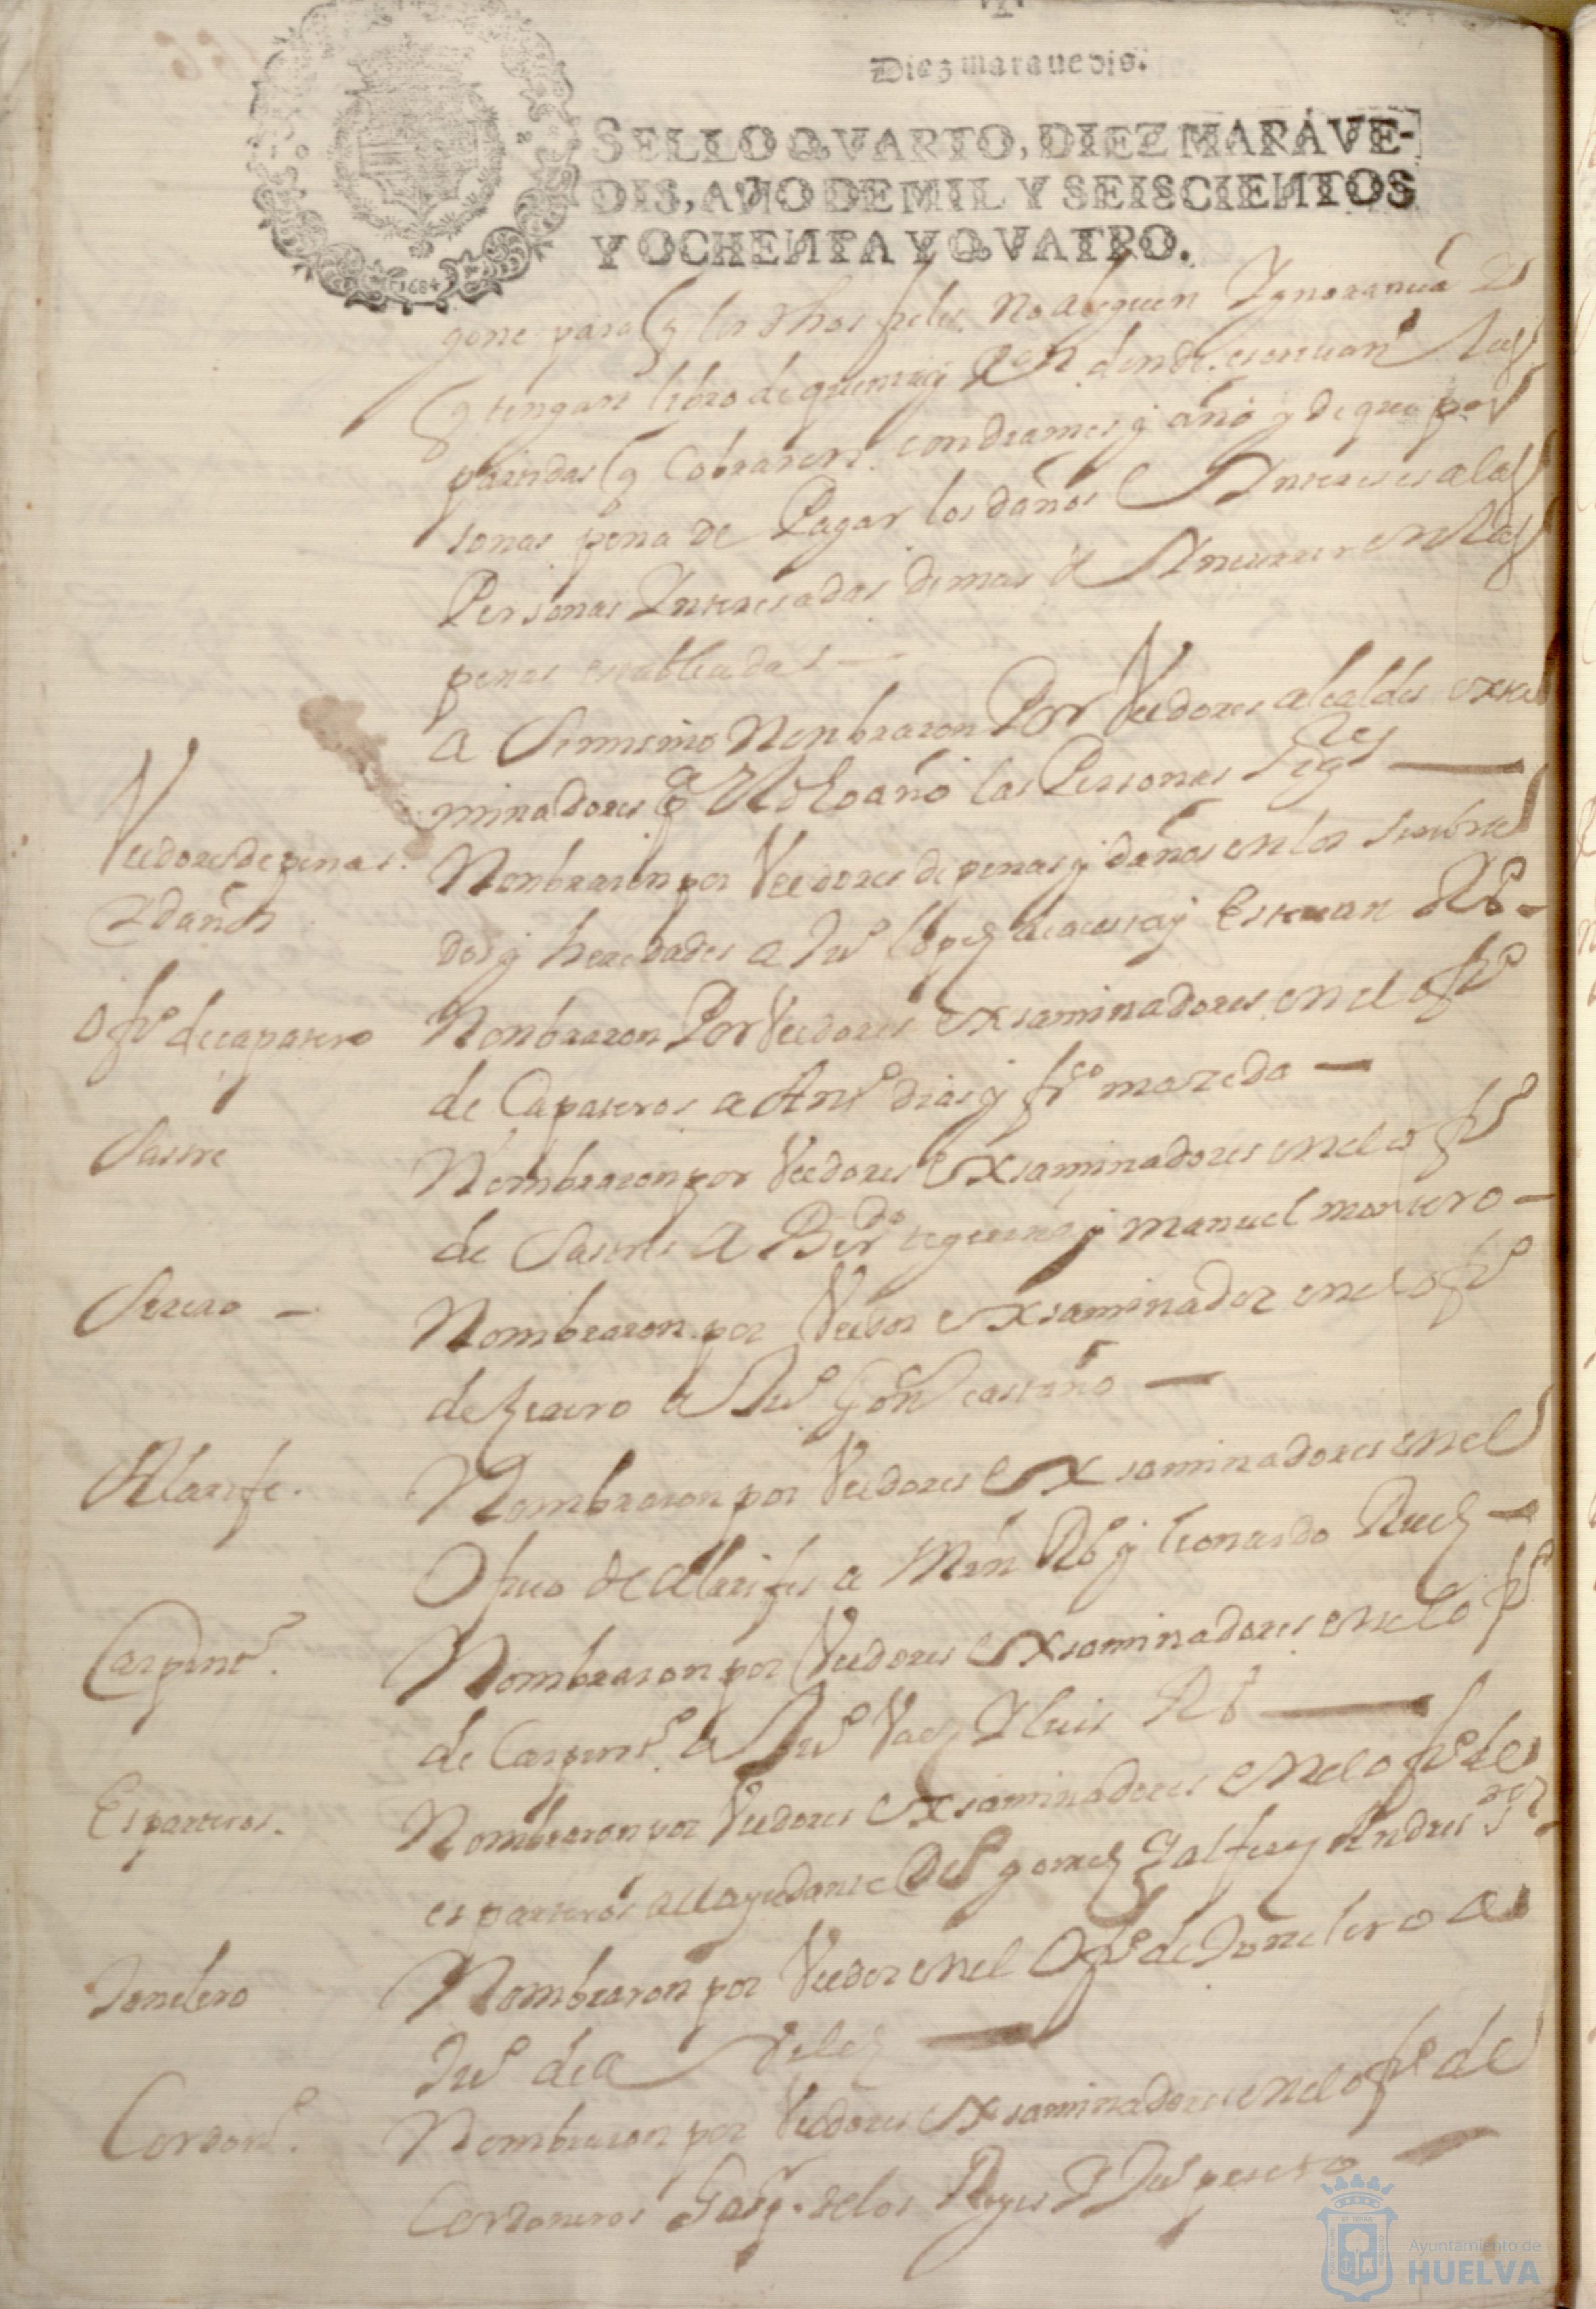 Diez maravedis.
SELLO QVARTO, DIEZ MARAVE-
DIS, AÑO DE MIL Y SEISCIENTOS
Y OCHENTA Y QVATRO.
1684
gone para q los dhos fieles No aleguen Ygnorancia
q tengan libro de quenta y Ron donde escriuan las
partidas q Cobraren con dia mes y año y de que per
sonas pena de Pagar los daños Yntereses a las
Personas Ynteresadas demas de Yncurrir en las
penas establecidas —
a Simismo Nonbraron Por Veedores alcaldes exsa
minadores Este dho año las Personas sigtes —
Veedores de penas
Y daños
Nonbraron por Veedores de penas y daños en los senbra
dos y heredades a Juo lopez de acosta y Esteuan Ro —
ofo de capatero
Nonbraron Por Veedores exsaminadores en el ofo
de Capateros a Anto dias y franco mazeda —
Sastre
Nombraron por Veedores exsaminadores en el ofo
de Sastres a Berdo y manuel montero —
Serero —
Nombraron por Veedor exsaminador en el ofo
de zerero a Juo Gon castaño —
Alarife.
Nombraron por Veedores exsaminadores en el
Ofico de Alarifes a Mrn Ro y leonardo Ruiz —
Carpinto.
Nombraron por Veedores exsaminadores en el ofo
de Carpinto a Juo Vaez Y luis Ro —
Esparteros.
Nombraron por Veedores exsaminadores en el ofo de
esparteros al ayudante Do gomez Andres
Tonelero
Nombraron por Veedor en el Ofo de Tonelero a
Juo de a Velez —
Cordono.
Nombraron por Veedores exsaminadores en el ofo de
Cordoneros Gasp. de los Reyes Y Juo —
Ayuntamiento de
HUELVA